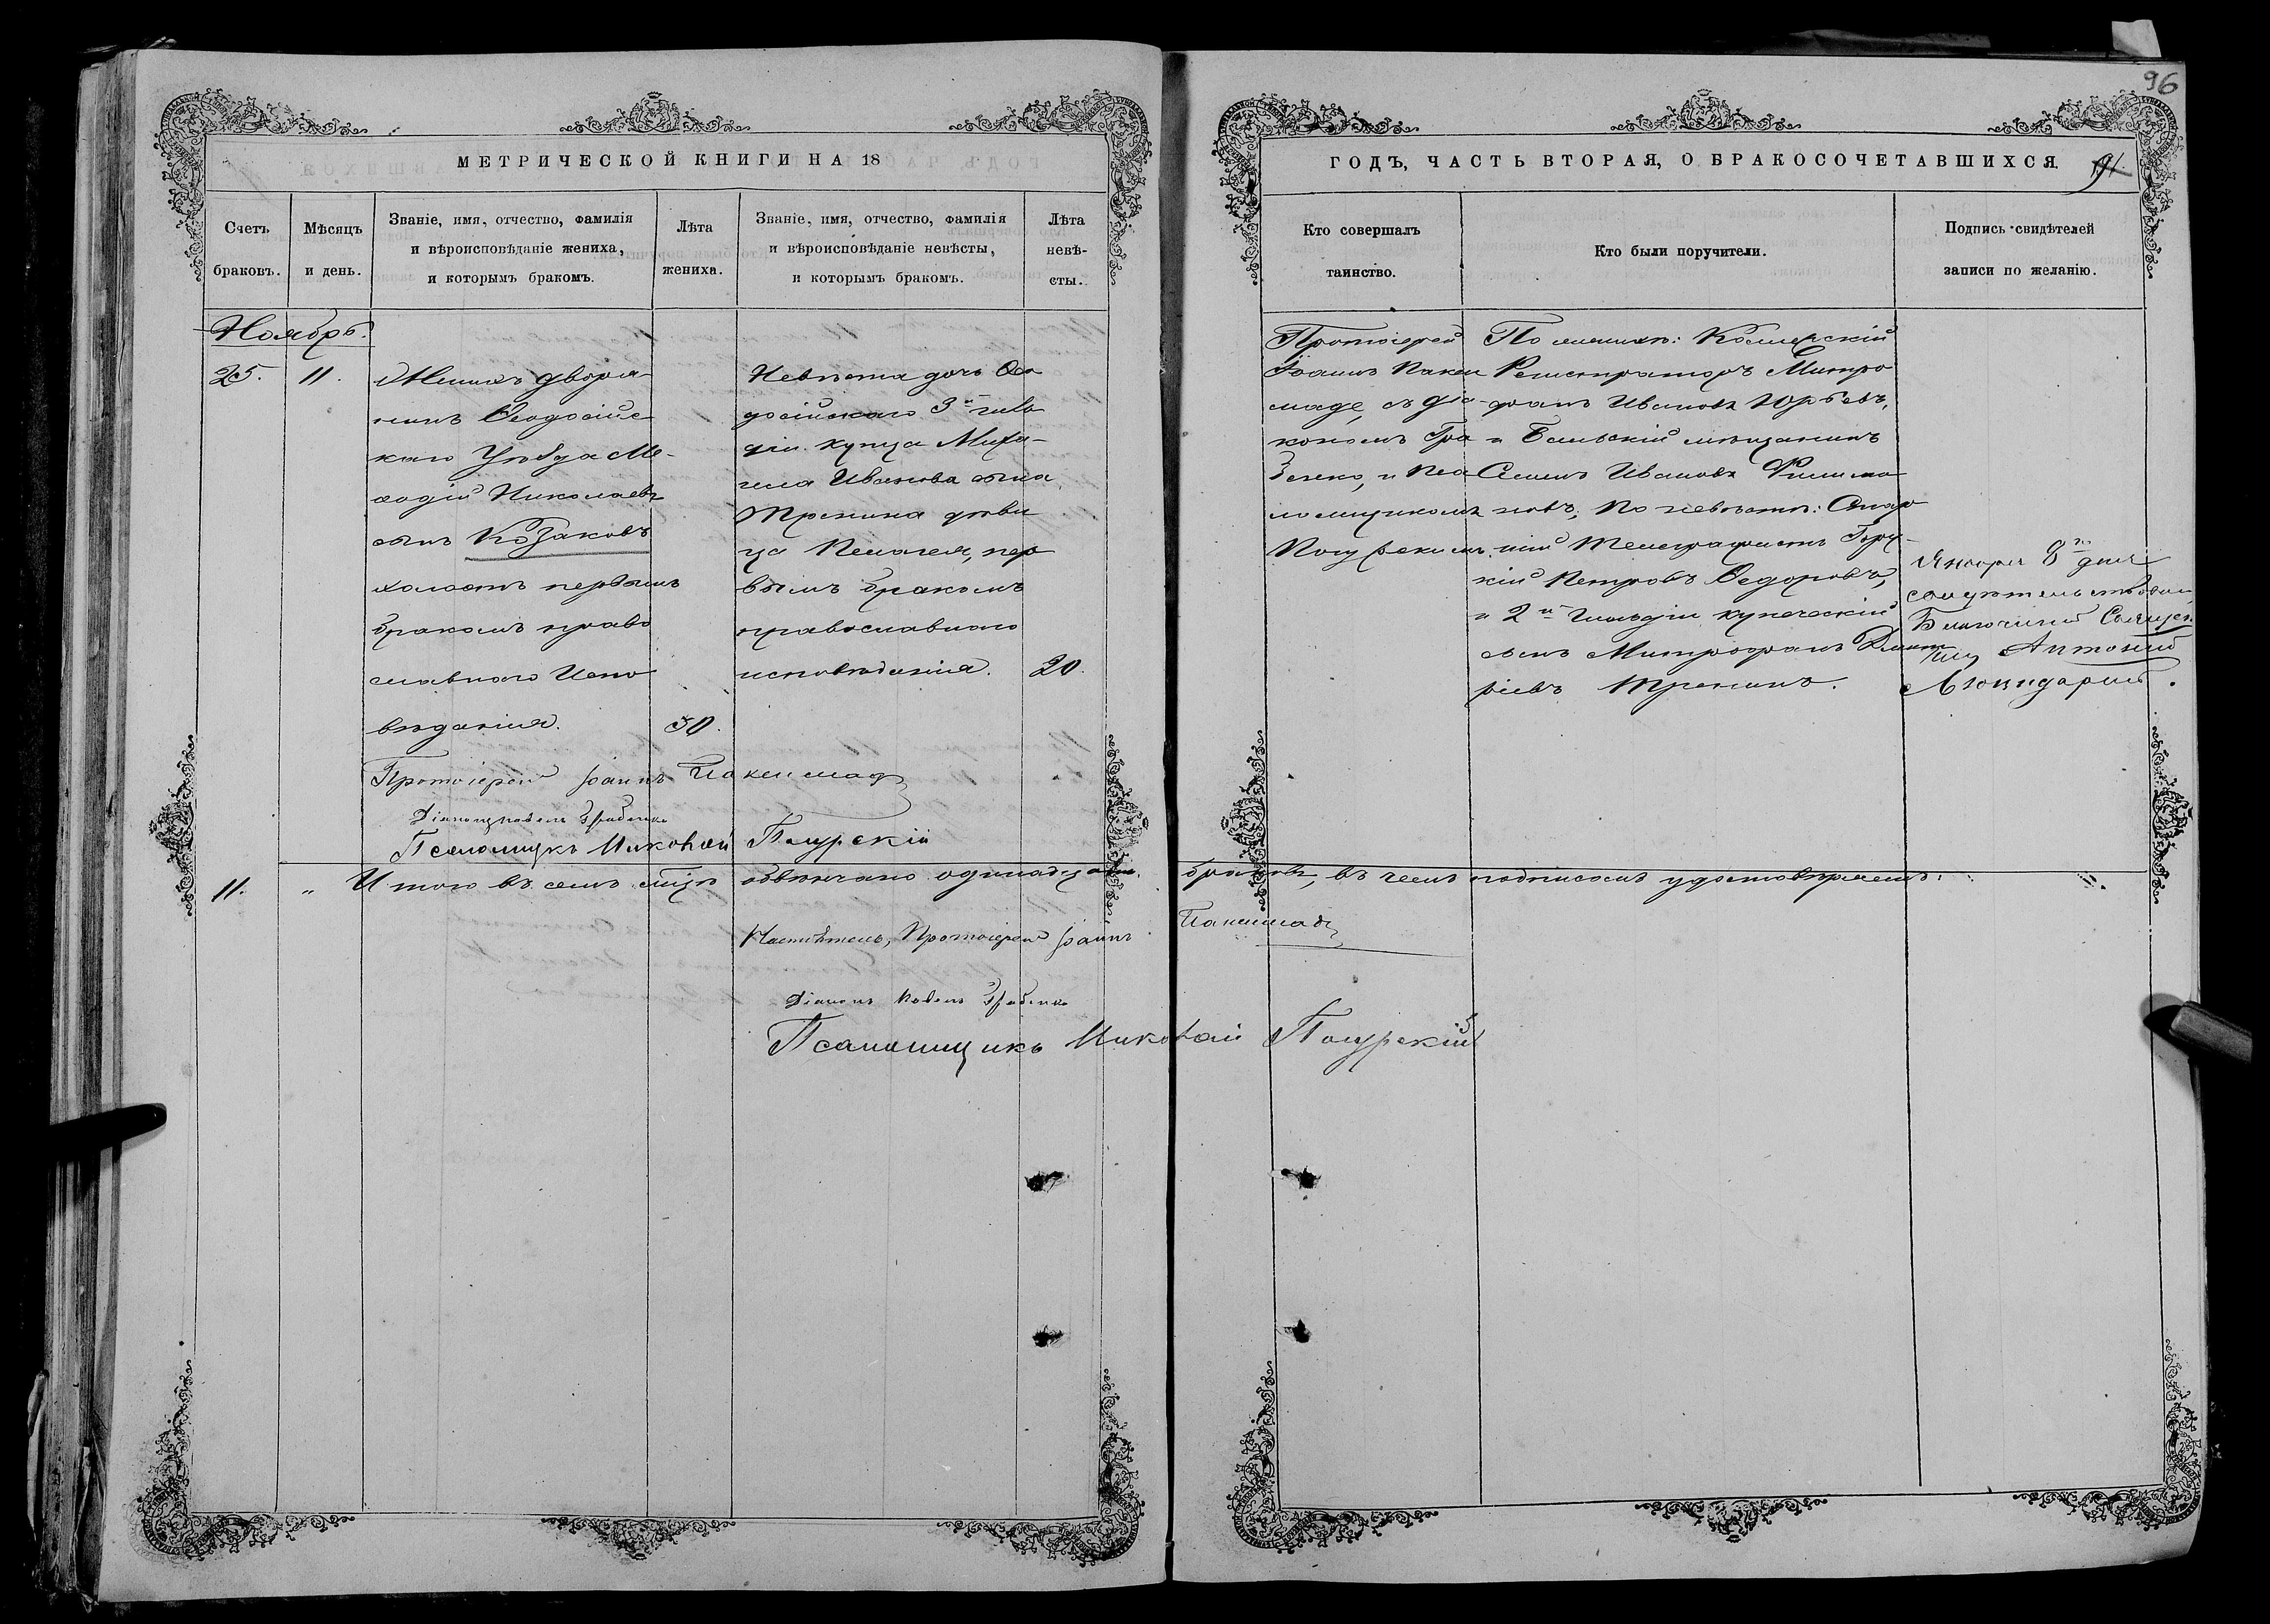 96
МЕТРИЧЕСКОЙ КНИГИ НА 18
Счетъ
браковъ.
Мѣсяцъ
и день.
Званіе, имя, отчество, фамилія
и вѣроисповѣданіе жениха,
и которымъ бракомъ.
Лѣта
жениха.
Званіе, имя, отчество, фамилія
и вѣроисповѣданіе невѣсты,
и которымъ бракомъ.
Лѣта
невѣ-
сты.
Ноябрь.
25.
11.
Женихъ дворя-
нинъ Ѳеодосійс-
каго Уѣзда Ме-
ѳодій Николаевъ
сынъ Козаковъ
холостъ первымъ
бракомъ право
славнаго Испо
вѣданія.
30.
Невѣста дочь Ѳео
досійскаго 3й гиль
діи купца Миха-
ила Иванова сына
Тренина дѣви
ца Пелагея, пер
вымъ бракомъ
православнаго
исповѣданія.
20.
Протоіерей Іоаннъ Пакси маде
Діаконъ Павелъ Грабенко
Псаломщикъ Николай Погурскій
11.
"
Итого въ семъ м-цѣ обвѣнчано одинадцать
Настоятель, Протоіерей Іоаннъ
Діаконъ Павелъ Грабенко
Псаломщикъ Николай
ГОДЪ, ЧАСТЬ ВТОРАЯ, О БРАКОСОЧЕТАВШИХСЯ.
91.
Кто совершалъ
таинство.
Кто были поручители.
Подпись свидѣтелей
записи по желанію.
Протоіерей
Іоаннъ Пакси
маде, съ діа-
кономъ Гра
бенко, и Пса
ломщикомъ
Погурскимъ.
По женихѣ: Коллежскій
Регистраторъ Митро
фанъ Ивановъ Юрьевъ,
и Бельскій мѣщанинъ
Семенъ Ивановъ Филимо
новъ; По невѣстѣ: Стар
шій Телеграфистъ
Петровъ Ѳедоровъ,
и 2й Гильдіи купеческій
сынъ Митрофанъ Дмит
ріевъ Тренинъ.
Января 8го дня
свидѣтельствовалъ
Благочинный Священ
никъ Антоній
браковъ, въ чемъ подписомъ удостовѣряемъ:
Паксимаде
Погурскій